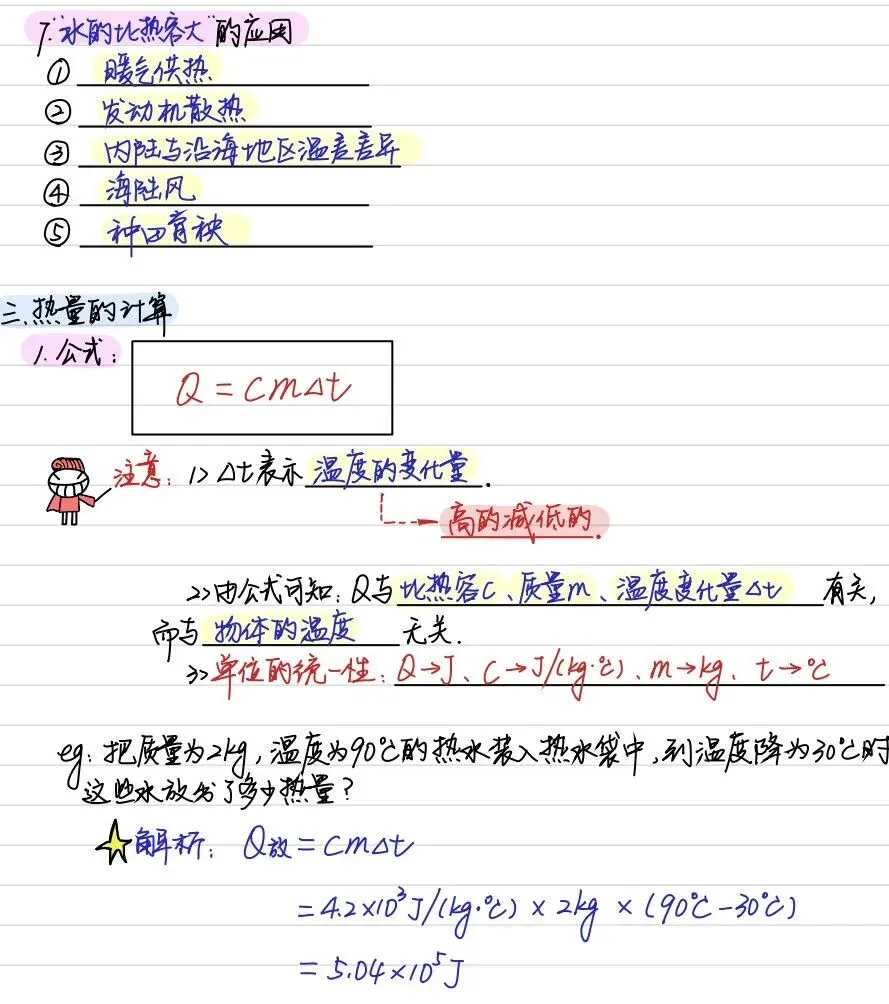 7."水的比热容大"的应用
① 暖气供热
② 发动机散热
③ 内陆与沿海地区温差差异
④ 海陆风
⑤ 种田育秧
三.热量的计算
1.公式:
Q = cm△t
注意: 1> △t表示温度的变化量.
高的减低的.
2>由公式可知:Q与比热容C、质量m、温度变化量△t有关,
而与物体的温度无关.
3>单位的统一性:Q→J、C→J/(kg·℃)、m→kg、t→℃
eg:把质量为2kg,温度为90℃的热水装入热水袋中,到温度降为30℃时
这些水放出了多少热量?
解析: Q放 = cm△t
= 4.2×10³J/(kg·℃) × 2kg × (90℃-30℃)
= 5.04×10⁵J